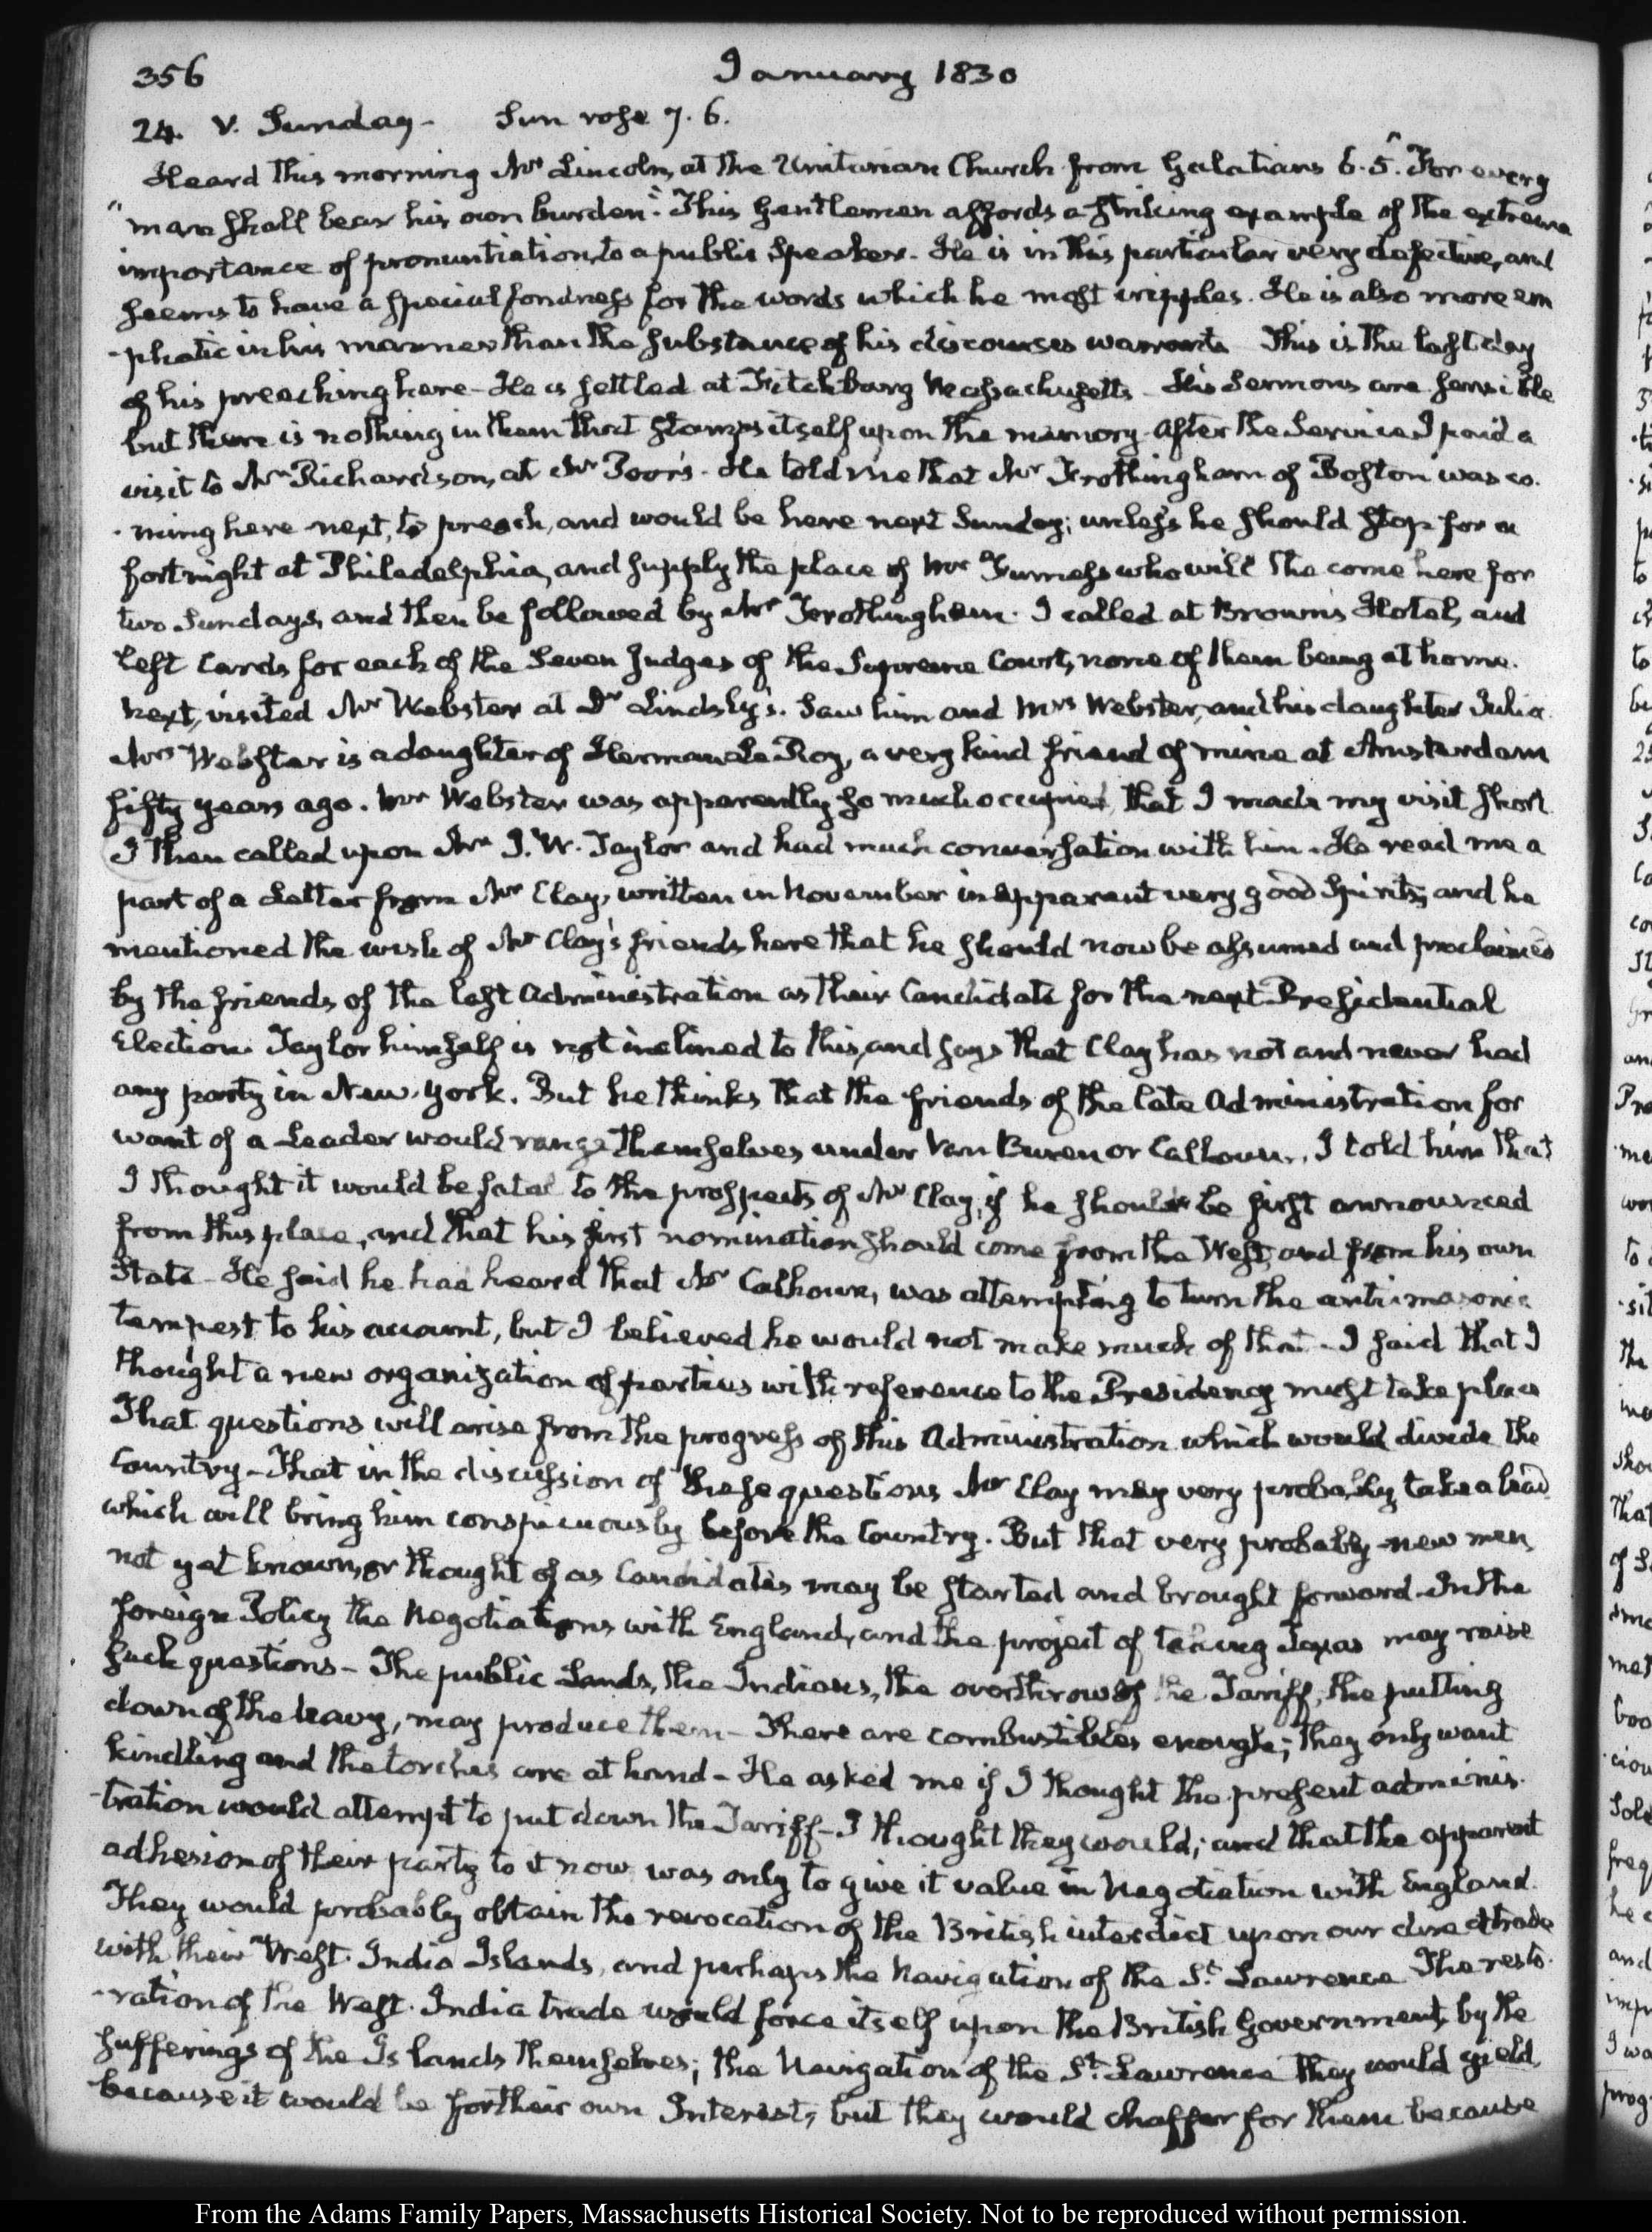 356 January 1830
24. V. Sunday - Sun rose 7. 6.
Heard this morning Mr Lincoln, at the Unitarian Church from Galatians 6. 5. "For every
"man shall bear his own burden." This Gentleman affords a striking example of the extreme
importance of pronuntiation, to a public Speaker. He is in this particular very defective, and
seems to have a special fondness for the words which he most cripples. He is also more em
-phatic in his manner than the substance of his discourses warrants This is the last day
of his preaching here - He is settled at Fitchburg Massachusetts - His Sermons are sensible
but there is nothing in them that stamps itself upon the memory - After the Service I paid a
visit to Mr Richardson, at Mr Poor's - He told me that Mr Frothingham of Boston was co.
-ming here next, to preach, and would be here next Sunday; unless he should stop for a
fortnight at Philadelphia, and supply the place of Mr Furness who will the come here for
two Sundays, and then be followed by Mr Frothingham. I called at Brown's Hotel, and
left Cards for each of the Seven Judges of the Supreme Court, none of them being at home.
Next, visited Mr Webster at Dr Lindsly's. Saw him and Mrs Webster, and his daughter Julia
Mrs Webster is a daughter of Herman Le Roy, a very kind friend of mine at Amsterdam
fifty years ago. Mr Webster was apparently so much occupied, that I made my visit short
I then called upon Mr J. W. Taylor and had much conversation with him. He read me a
part of a Letter from Mr Clay, written in November in apparent very good Spirits; and he
mentioned the wish of Mr Clay's friends here that he should now be assumed and proclaimed
by the friends of the last Administration as their Candidate for the next Presidential
Election. Taylor himself is not inclined to this, and says that Clay has not and never had
any party in New-York. But he thinks that the friends of the late Administration for
want of a Leader would range themselves under Van Buren or Calhoun. I told him that
I thought it would be fatal to the prospects of Mr Clay, if he should be first announced
from this place, and that his first nomination should come from the West, and from his own
State - He said he had heard that Mr Calhoun, was attempting to turn the antimasonic
tempest to his account, but I believed he would not make much of that - I said that I
thought a new organization of parties with reference to the Presidency must take place
That questions will arise from the progress of this Administration which would divide the
Country - That in the discussion of these questions Mr Clay may very probably take a lead
which will bring him conspicuously before the Country. But that very probably new men,
not yet known, or thought of as Candidates may be started and brought forward - In the
foreign Policy the Negotiations with England, and the project of taking Texas may raise
such questions - The public Lands, the Indians, the overthrow of the Tariff, the putting
down of the Navy, may produce them - There are combustibles enough; they only want
kindling and the torches are at hand - He asked me if I thought the present adminis-
-tration would attempt to put down the Tariff - I thought they would; and that the apparent
adhesion of their party to it now was only to give it value in Negotiation with England.
They would probably obtain the revocation of the British interdict upon our direct trade
with their West-India Islands, and perhaps the Navigation of the St. Lawrence The resto-
-ration of the West-India trade would force itself upon the British Government, by the
sufferings of the Islands themselves; the Navigation of the St. Lawrence they would yield,
because it would be for their own Interest, but they would chaffer for them because
From the Adams Family Papers, Massachusetts Historical Society. Not to be reproduced without permission.